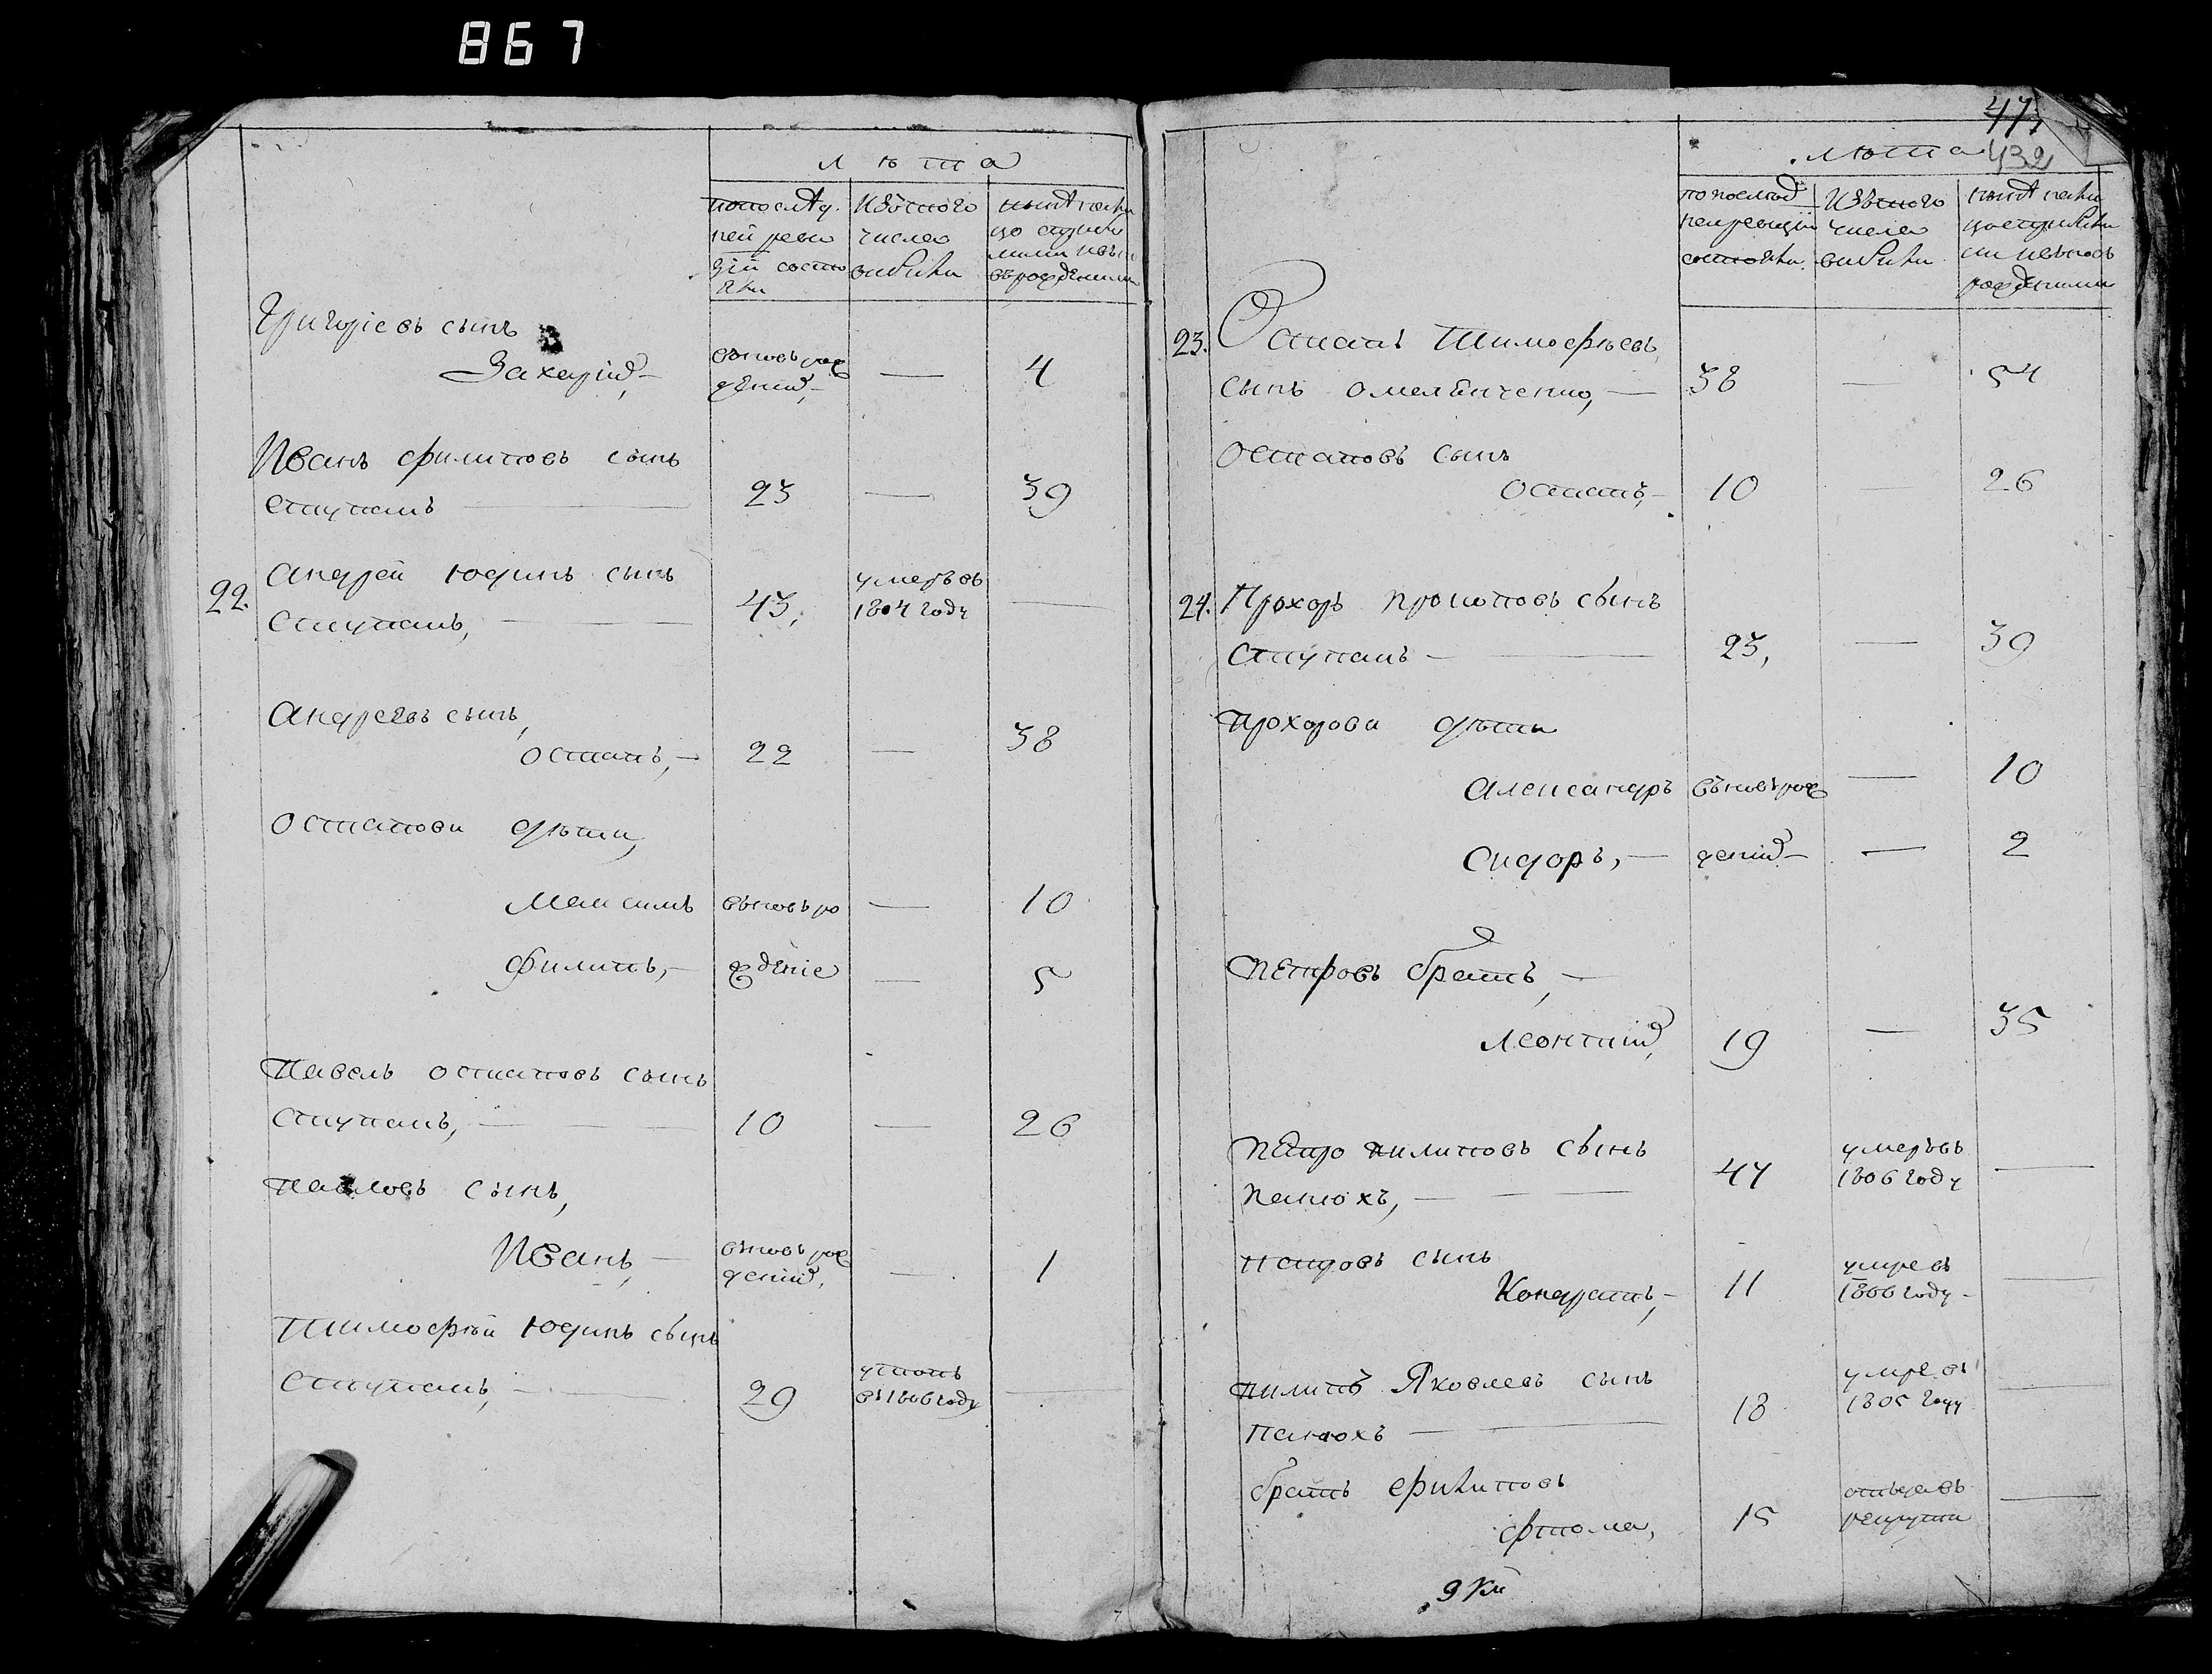 867
лѣта
по послѣд.
ней реви
зіи состо
яли
Изъ того
числа
выбыли
нынѣ на ли
цо
въ рожденными
Григоріевъ сынъ
Захарій,
вновь рож
деній,
—
4
Иванъ Филиповъ сынъ
Ступакъ
23
—
39
22.
Андрей Юдинъ сынъ
Ступакъ,
43,
умеръ въ
1804 году
—
Андреевъ сынъ,
Остапъ,
22
—
38
Остапови дѣти,
Максимъ
вновь ро
—
10
Филипъ,
жденіе
—
5
Павелъ Остаповъ сынъ
Ступакъ,
10
—
26
Павловъ сынъ,
Иванъ,
вновь рож
деній,
—
1
Тимофѣй Юдинъ сынъ
Ступакъ,
29
утопъ
въ 1806 году
—
47
432
лѣта
по послѣд
ней ревизіи
состояли.
Изъ того
числа
выбыли
нынѣ на ли
цо
рожденными
23.
Остапъ Тимофѣевъ
сынъ Омельянченко,
38
—
54
Остаповъ сынъ
Остапъ,
10
—
26
24.
Прохоръ Прокоповъ сынъ
Ступакъ
23,
—
39
Прохорови дѣти
Александръ
вновь рож
—
10
Сидоръ,
деній
—
2
Петровъ братъ,
Леонтій,
19
—
35
Петро Пилиповъ сынъ
Панюхъ,
44
умеръ въ
1806 году
—
Петровъ сынъ
Кондратъ,
11
умре въ
1806 году
—
Пилипъ Яковлевъ сынъ
Панюхъ
18
умре въ
1805 году
—
братъ Филиповъ
Фтома,
15
отъданъ въ
рекруты
—